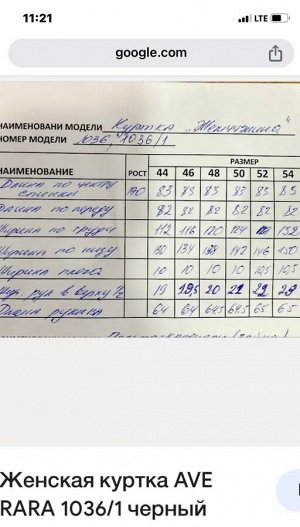 11:21 LTE
google.com
НАИМЕНОВАНИ МОДЕЛИ Куртка „Жемчужина"
НОМЕР МОДЕЛИ 1036, 1036/1
РАЗМЕР
НАИМЕНОВАНИЕ РОСТ 44 46 48 50 52 54
Длина по центру спинки 170 83 83 83 83 83 83
Длина по переду 82 82 82 82 82 82
Ширина по груди 112 116 120 124 132
Ширина по низу 134 138 142 146 150
Ширина плеча 10 10 10 10 10,5 10,5
Шир. рук в верху 1/2 19 19,5 20 21 22 23
Длина рукава 64 64 64,5 64,5 65 65
Женская куртка AVE
RARA 1036/1 черный